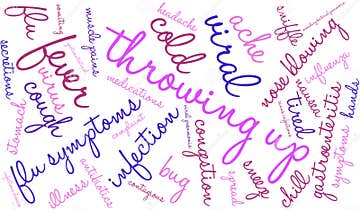 flu
vomiting
muscle pains
headache
cold
viral
ache
sniffle
nose blowing
secretions
fever
virus
cough
throwing up
medications
influenza
nausea
tired
hands
stomach
flu symptoms
complaint
infection
congestion
gastroenteritis
symptoms
illness
antibiotics
contagious
bug
spread
sneeze
chill